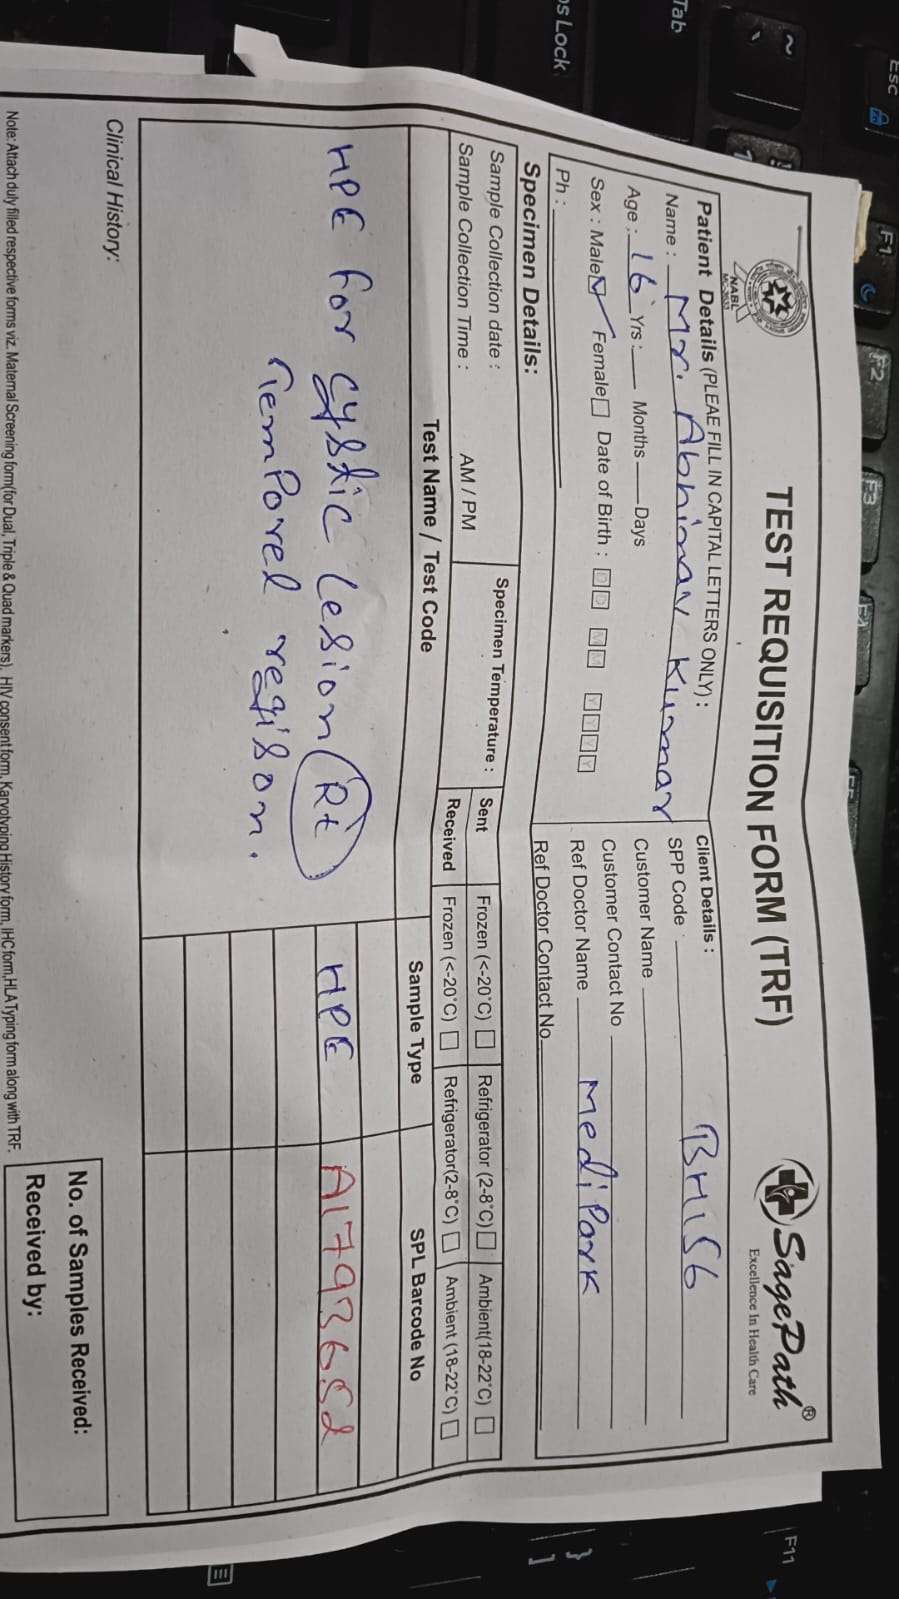 TEST REQUISITION FORM (TRF)
SagePath®
Excellence In Health Care
NABL
Patient Details (PLEAE FILL IN CAPITAL LETTERS ONLY) :
Name : Mr. Abhinav Kumar
Age : 16 Yrs : Months Days
Sex : Male Female Date of Birth : D D M M Y Y Y Y
Ph :
Client Details :
SPP Code BH156
Customer Name
Customer Contact No
Ref Doctor Name Medi Park
Ref Doctor Contact No
Specimen Details:
Sample Collection date :
Sample Collection Time : AM / PM
Specimen Temperature :
Sent Frozen (<-20°C) Refrigerator (2-8°C) Ambient(18-22°C)
Received Frozen (<-20°C) Refrigerator(2-8°C) Ambient (18-22°C)
Test Name / Test Code Sample Type SPL Barcode No
HPE for cystic lesion Rt HPE
Temporel regison.
Clinical History:
No. of Samples Received:
Received by:
Note: Attach duly filled respective forms viz. Maternal Screening form(for Dual, Triple & Quad markers), HIV consent form, Karyotyping History form, IHC form, HLA Typing form along with TRF.
Esc
F1
F2
F3
F11
Tab
os Lock